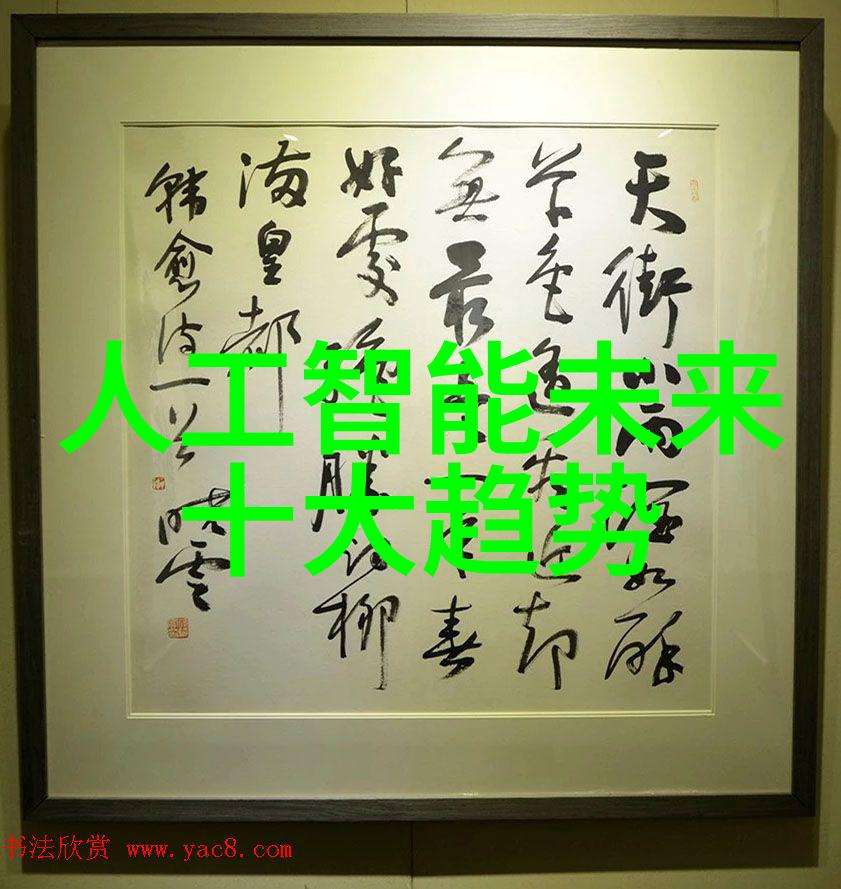 天街小雨潤如酥
草色遥看近却
無最是一年春
好處絶勝烟柳
滿皇都
韓愈诗一首
人工智能未来
十大趋势
书法欣赏 www.yac8.com